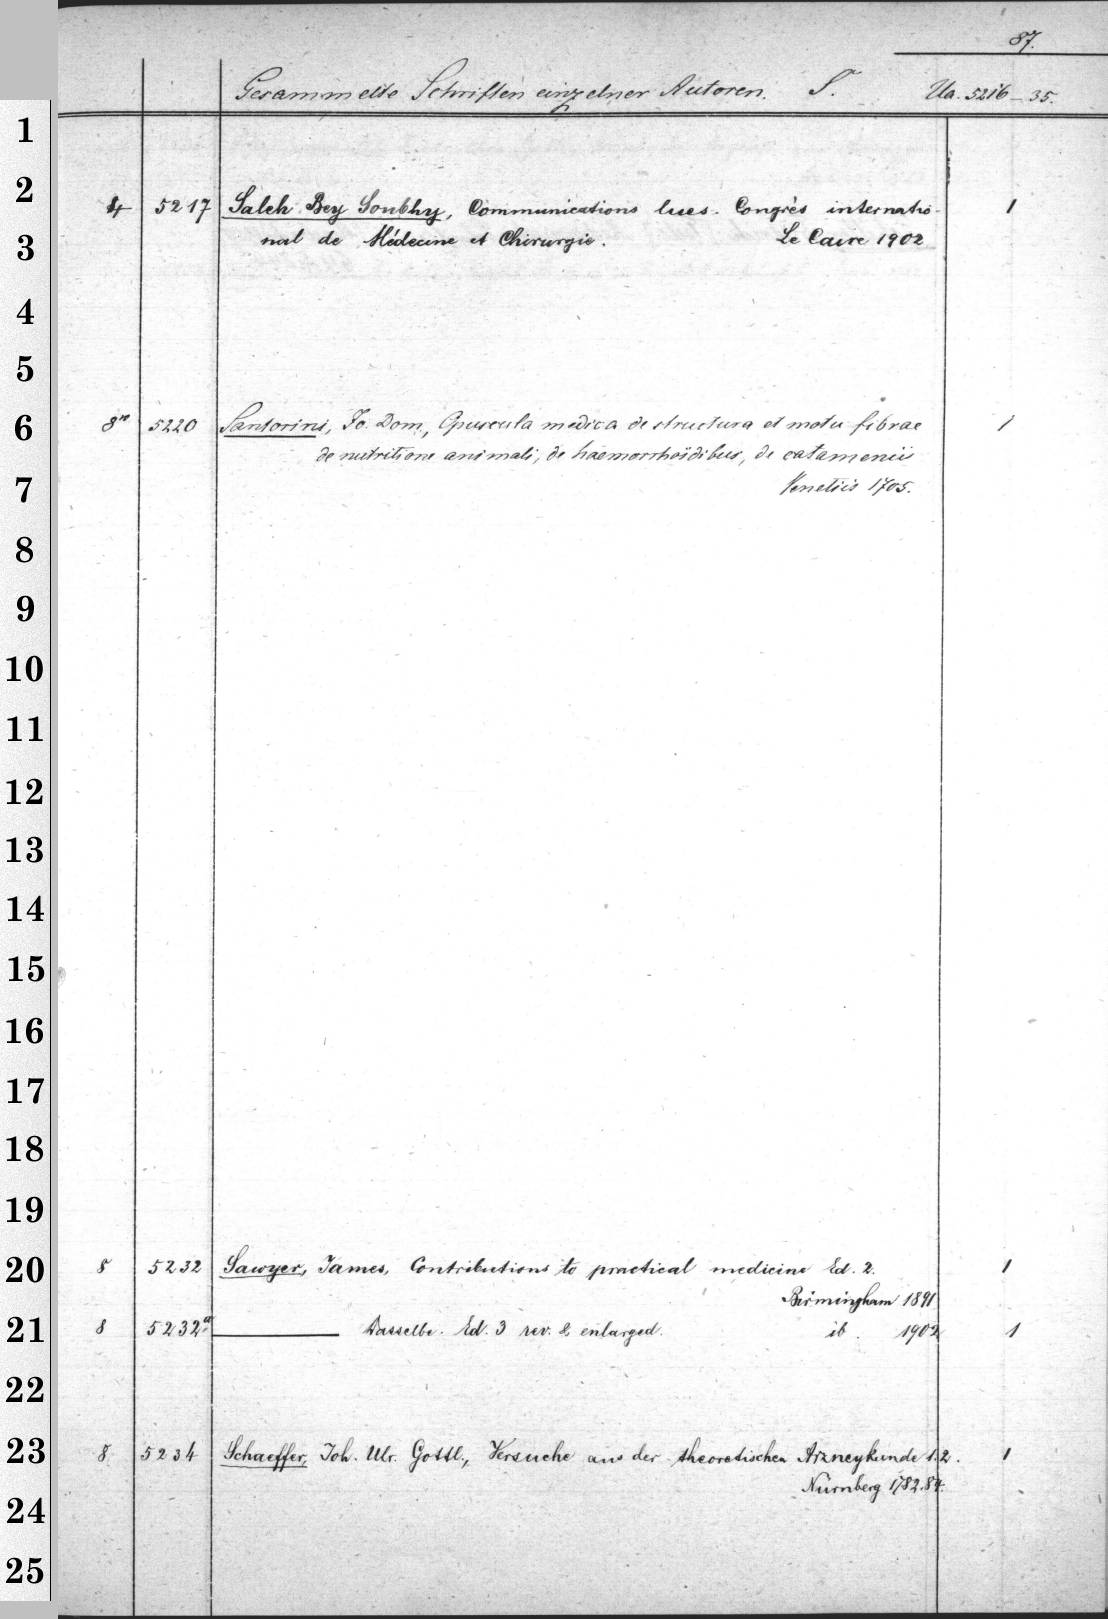 87.
Gesammelte Schriften einzelner Autoren. S. Ua. 5216-35.
1
2
4 5217 Saleh Bey Soubhy, Communications lues. Congrès internatio- 1
3 nal de Médecine et Chirurgie. Le Caire 1902
4
5
6 8° 5220 Santorini, Jo. Dom., Opuscula medica de structura et motu fibrae 1
de nutritione animali, de haemorrhoidibus, de catameniis
7 Venetiis 1705.
8
9
10
11
12
13
14
15
16
17
18
19
20 8 5232 Sawyer, James, Contributions to practical medicine Ed. 2. 1
Birmingham 1891
21 8 5232a Dasselbe. Ed. 3 rev. & enlarged. ib. 1902 1
22
23 8 5234 Schaeffer, Joh. Ulr. Gottl., Versuche aus der theoretischen Arzneykunde 1.2. 1
Nürnberg 1782.84.
24
25